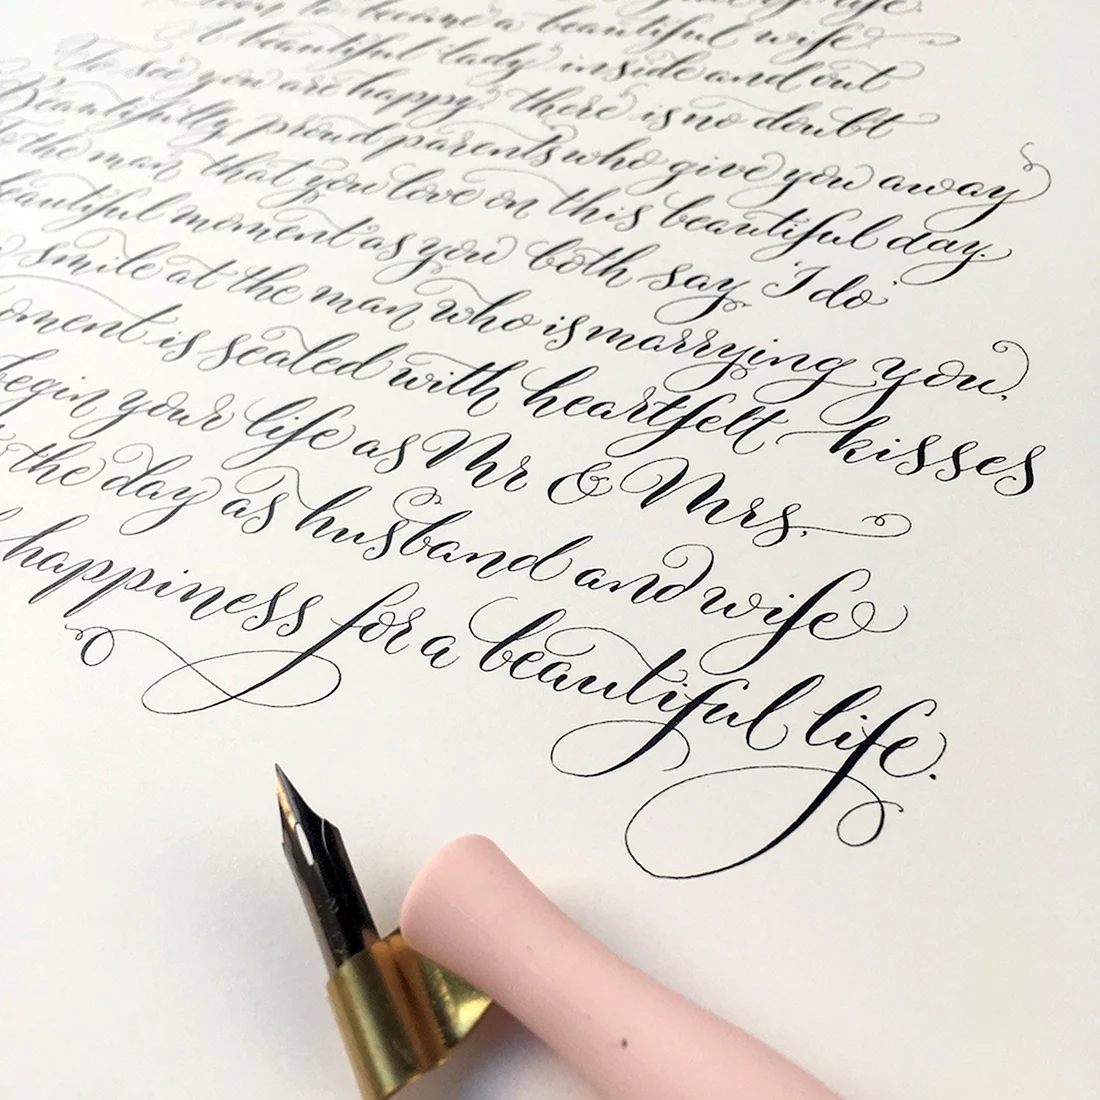 life.
to become a beautiful wife
A beautiful lady inside and out
To see you are happy, there is no doubt
Beautifully proud parents who give you away
to the man that you love on this beautiful day.
beautiful moment as you both say 'I do'
smile at the man who is marrying you.
moment is sealed with heartfelt kisses
begin your life as Mr & Mrs.
the day as husband and wife
happiness for a beautiful life.